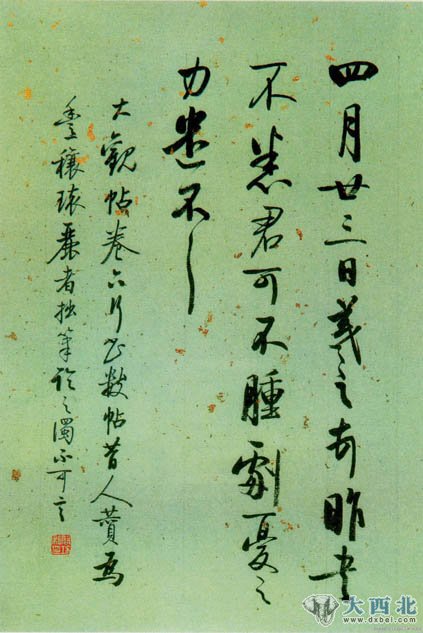 四月廿三日羲之頓昨書
不悉君可不腫劇憂之
力遣不一
大觀帖卷六行書數帖昔人贊為
豐穰環麗者拙筆臨之獨不可言
大西北
www.dxbei.com